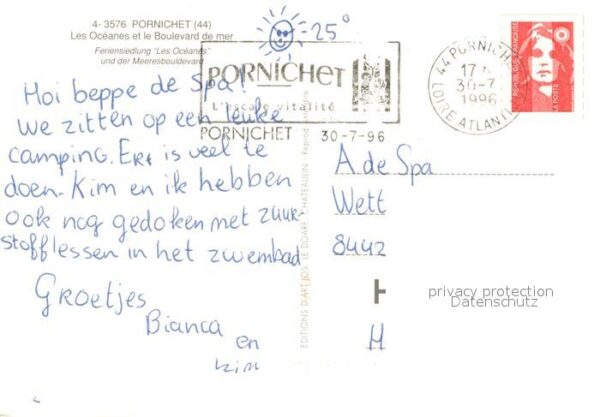 4-3576 PORNICHET (44)
Les Océanes et le Boulevard de mer
Feriensiedlung "Les Océanes"
und der Meeresboulevard
-25°
PORNICHET
L'escale vitalité
PORNICHET 30-7-96
44 PORNICHET
17
30-7
1996
LOIRE ATLANTI
REPUBLIQUE FRANÇAISE
LA POSTE
Hoi beppe de Spa!
We zitten op een leuke
camping. Er is veel te
doen. Kim en ik hebben
ook nog gedoken met zuur-
stofflessen in het zwembad
Groetjes
Bianca
en
Kim
EDITIONS D'ART JOS LE DOARÉ CHATEAULIN
A de Spa
Wett
8442
H
H
privacy protection
Datenschutz